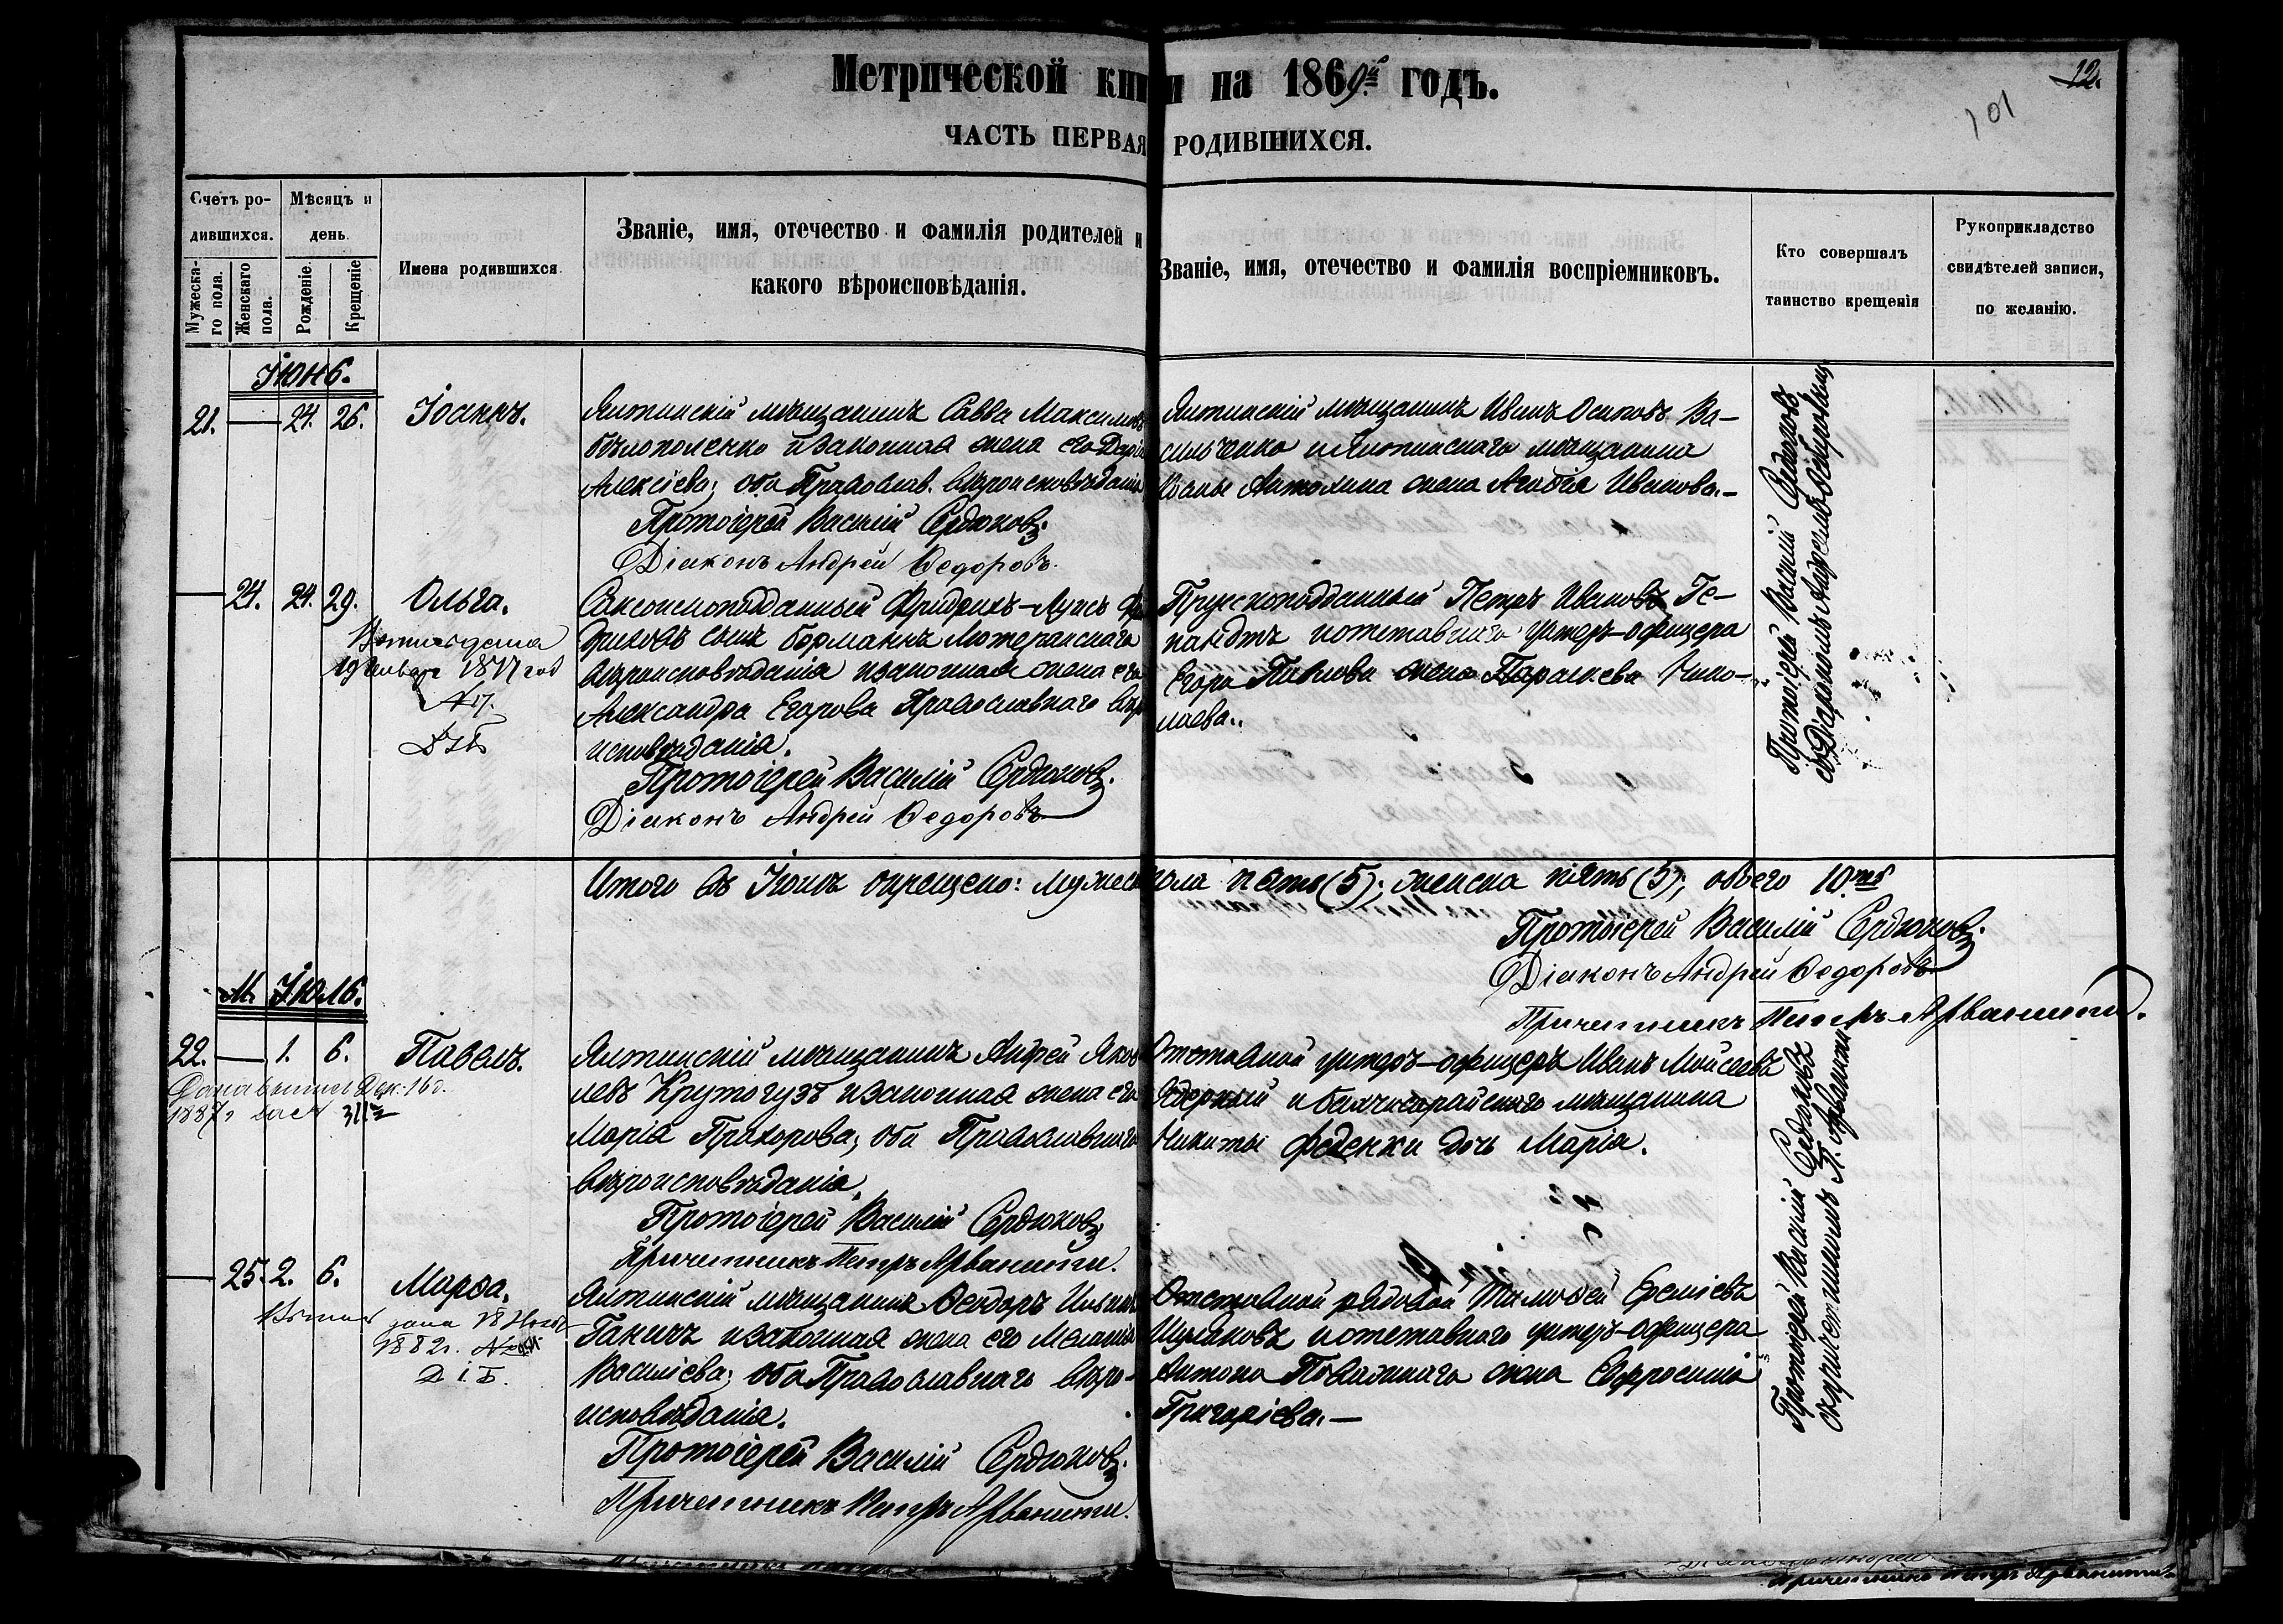 Метрической книги на 1869й годъ.
12.
101
ЧАСТЬ ПЕРВАЯ РОДИВШИХСЯ.
Счетъ родившихся.
Мужескаго пола.
Женскаго пола.
Мѣсяцъ и день.
Рожденіе.
Крещеніе
Имена родившихся
Званіе, имя, отечество и фамилія родителей и
какого вѣроисповѣданія.
Званіе, имя, отечество и фамилія воспріемниковъ.
Кто совершалъ
таинство крещенія
Рукоприкладство
свидѣтелей записи,
по желанію.
Іюнь.
21. — 24. 26. Іоаннъ.
Ялтинскій мѣщанинъ Савва Максимовъ
Бѣлополенко и законная жена его Дарія
Алексіева; оба Православ. вѣроисповѣданія
Протоіерей Василій Сердюковъ.
Діаконъ Андрей Ѳедоровъ.
Ялтинскій мѣщанинъ Иванъ Осиповъ Ва-
сильченко и Ялтинскаго мѣщанина
жена Ивановa.—
Протоіерей Василій Сердюковъ
съ Діакономъ Андреемъ Ѳедоровымъ
— 24. 24. 29. Ольга.
19 Января 1877 год
№ 17.
Саксонскоподданный Фридрихъ-Луисъ
сынъ Борманнъ Лютеранскаго
вѣроисповѣданія и законная жена его
Александра Егорова Православнаго вѣро
исповѣданія.
Протоіерей Василій Сердюковъ.
Діаконъ Андрей Ѳедоровъ
Прусскоподданный Петръ Ивановъ Ге-
и отставнаго унтеръ-офицера
Егора Павлова жена Параскева Нико-
лаева..
Итого въ Іюнѣ окрещено: мужеска пола пять (5); женска пять (5); обоего 10.ть
Протоіерей Василій Сердюковъ.
Діаконъ Андрей Ѳедоровъ
Причетникъ Петръ Арванити.
Іюль.
22. — 1. 6. Павелъ.
Дана выпись Дек. 16 д.
1887 г. за № 311
Ялтинскій мѣщанинъ Андрей Яков
левъ Крутогузъ и законная жена его
Марія Прохорова, оба Православнаго
вѣроисповѣданія.
Протоіерей Василій Сердюковъ
Причетникъ Петръ Арванити.
Отставной унтеръ-офицеръ Иванъ Мойсеевъ
и бахчисарайскаго мѣщанина
Никиты Феденки дочь Марія.
Протоіерей Василій Сердюковъ
съ причетникомъ П. Арванити
— 25. 2. 6. Марѳа.
дана 18
1882 г. №
Ялтинскій мѣщанинъ Ѳеодоръ Ильинъ
Ганичъ и законная жена его Меланія
Васильева; оба Православнаго вѣро-
исповѣданія.
Протоіерей Василій Сердюковъ.
Причетникъ Петръ Арванити.
Отставной рядовой Тимоѳей Еремѣевъ
и отставнаго унтеръ-офицера
Антона жена Евфросинія
Григоріева.—
Причетникъ Петръ Арванити